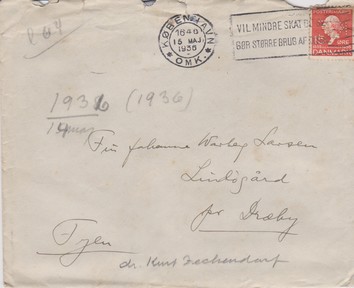 KØBENHAVN
1640
15 MAJ.
1936
OMK.
VIL MINDRE SKAT
GØR STØRRE BRUG AF
ØRE
DANMARK
1936 (1936)
14 maj
Fru Johanne Warberg Larsen
Lindøgård
pr Dræby
Fyen
dr. Kurt Zechendorf